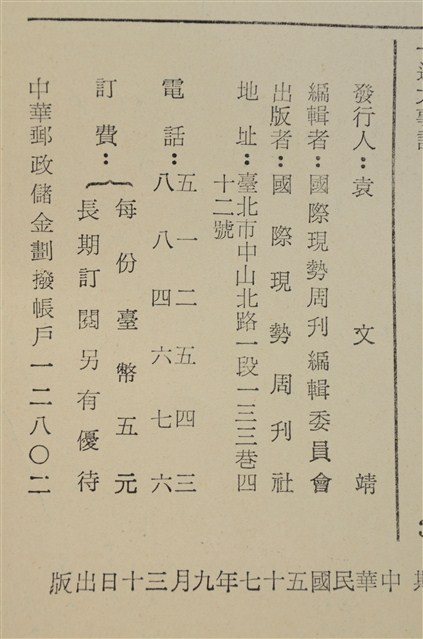 發行人：袁文靖
編輯者：國際現勢周刊編輯委員會
出版者：國際現勢周刊社
地址：臺北市中山北路一段一三三巷四
十二號
電話：五一二五四三
八八四六七六
訂費：每份臺幣五元
長期訂閱另有優待
中華郵政儲金劃撥帳戶一二八〇二
期 中華民國五十七年九月三十日出版